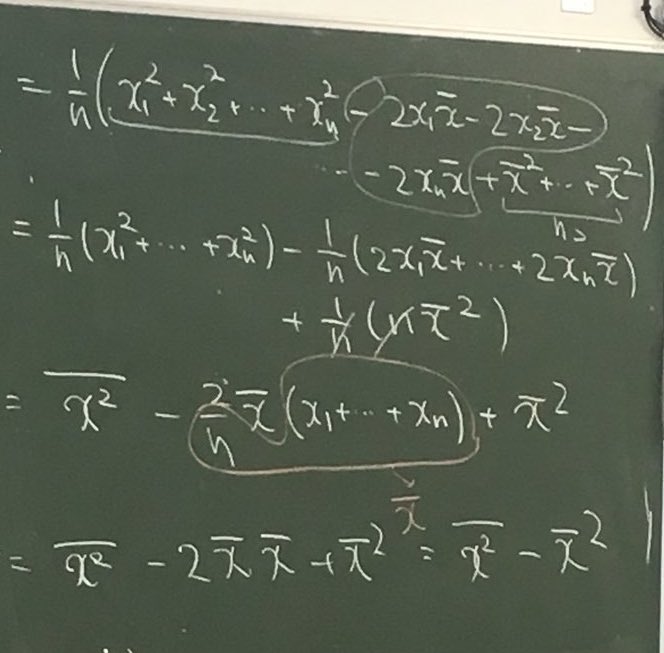 = 1/n (x₁² + x₂² + ⋯ + xₙ² − 2x₁x̄ − 2x₂x̄ −
⋯ − 2xₙx̄ + x̄² + ⋯ + x̄²)
nこ
= 1/n (x₁² + ⋯ + xₙ²) − 1/n (2x₁x̄ + ⋯ + 2xₙx̄)
+ 1/n (n x̄²)
= \overline{x²} − 2/n x̄ (x₁ + ⋯ + xₙ) + x̄²
x̄
= \overline{x²} − 2x̄ x̄ + x̄² = \overline{x²} − x̄²